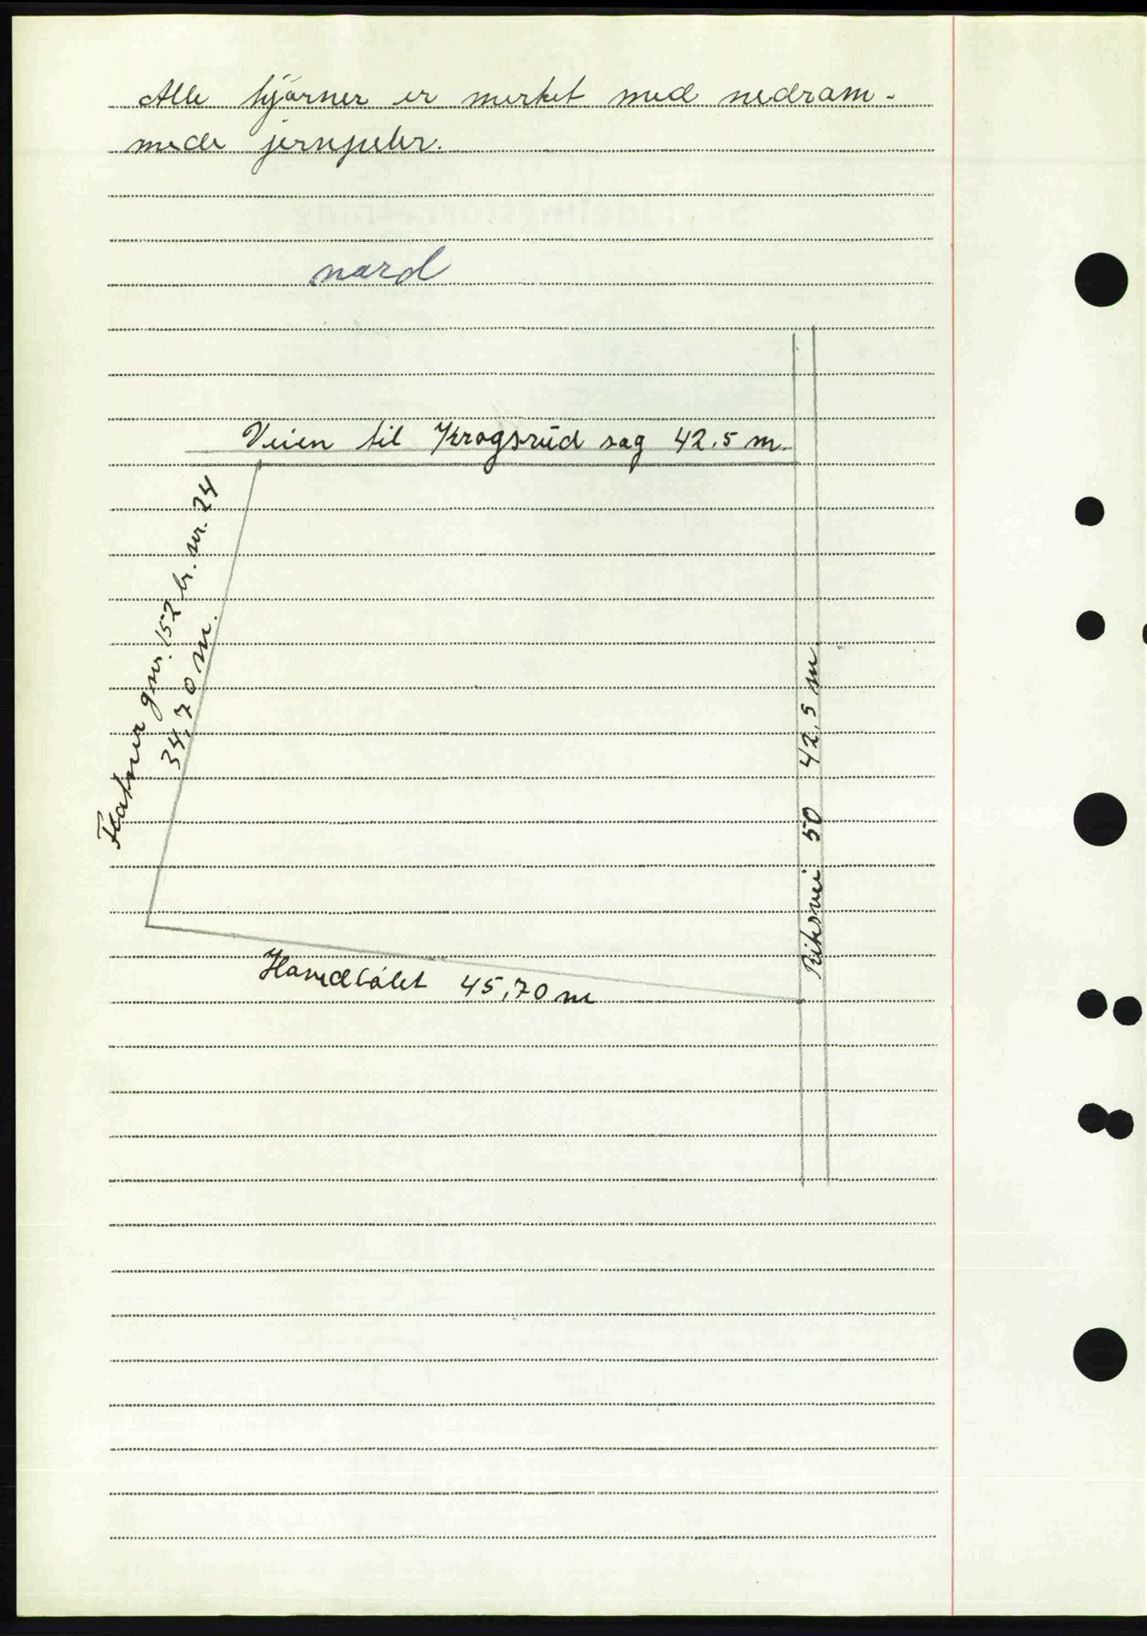 Alle hjørner er merket med nedram-
mede jernpeler.
nord
Veien til Krogsrud sag 42.5 m.
gnr. 152 br. nr. 24
34,70 m.
Riksvei 50 42,5 m
45,70 m